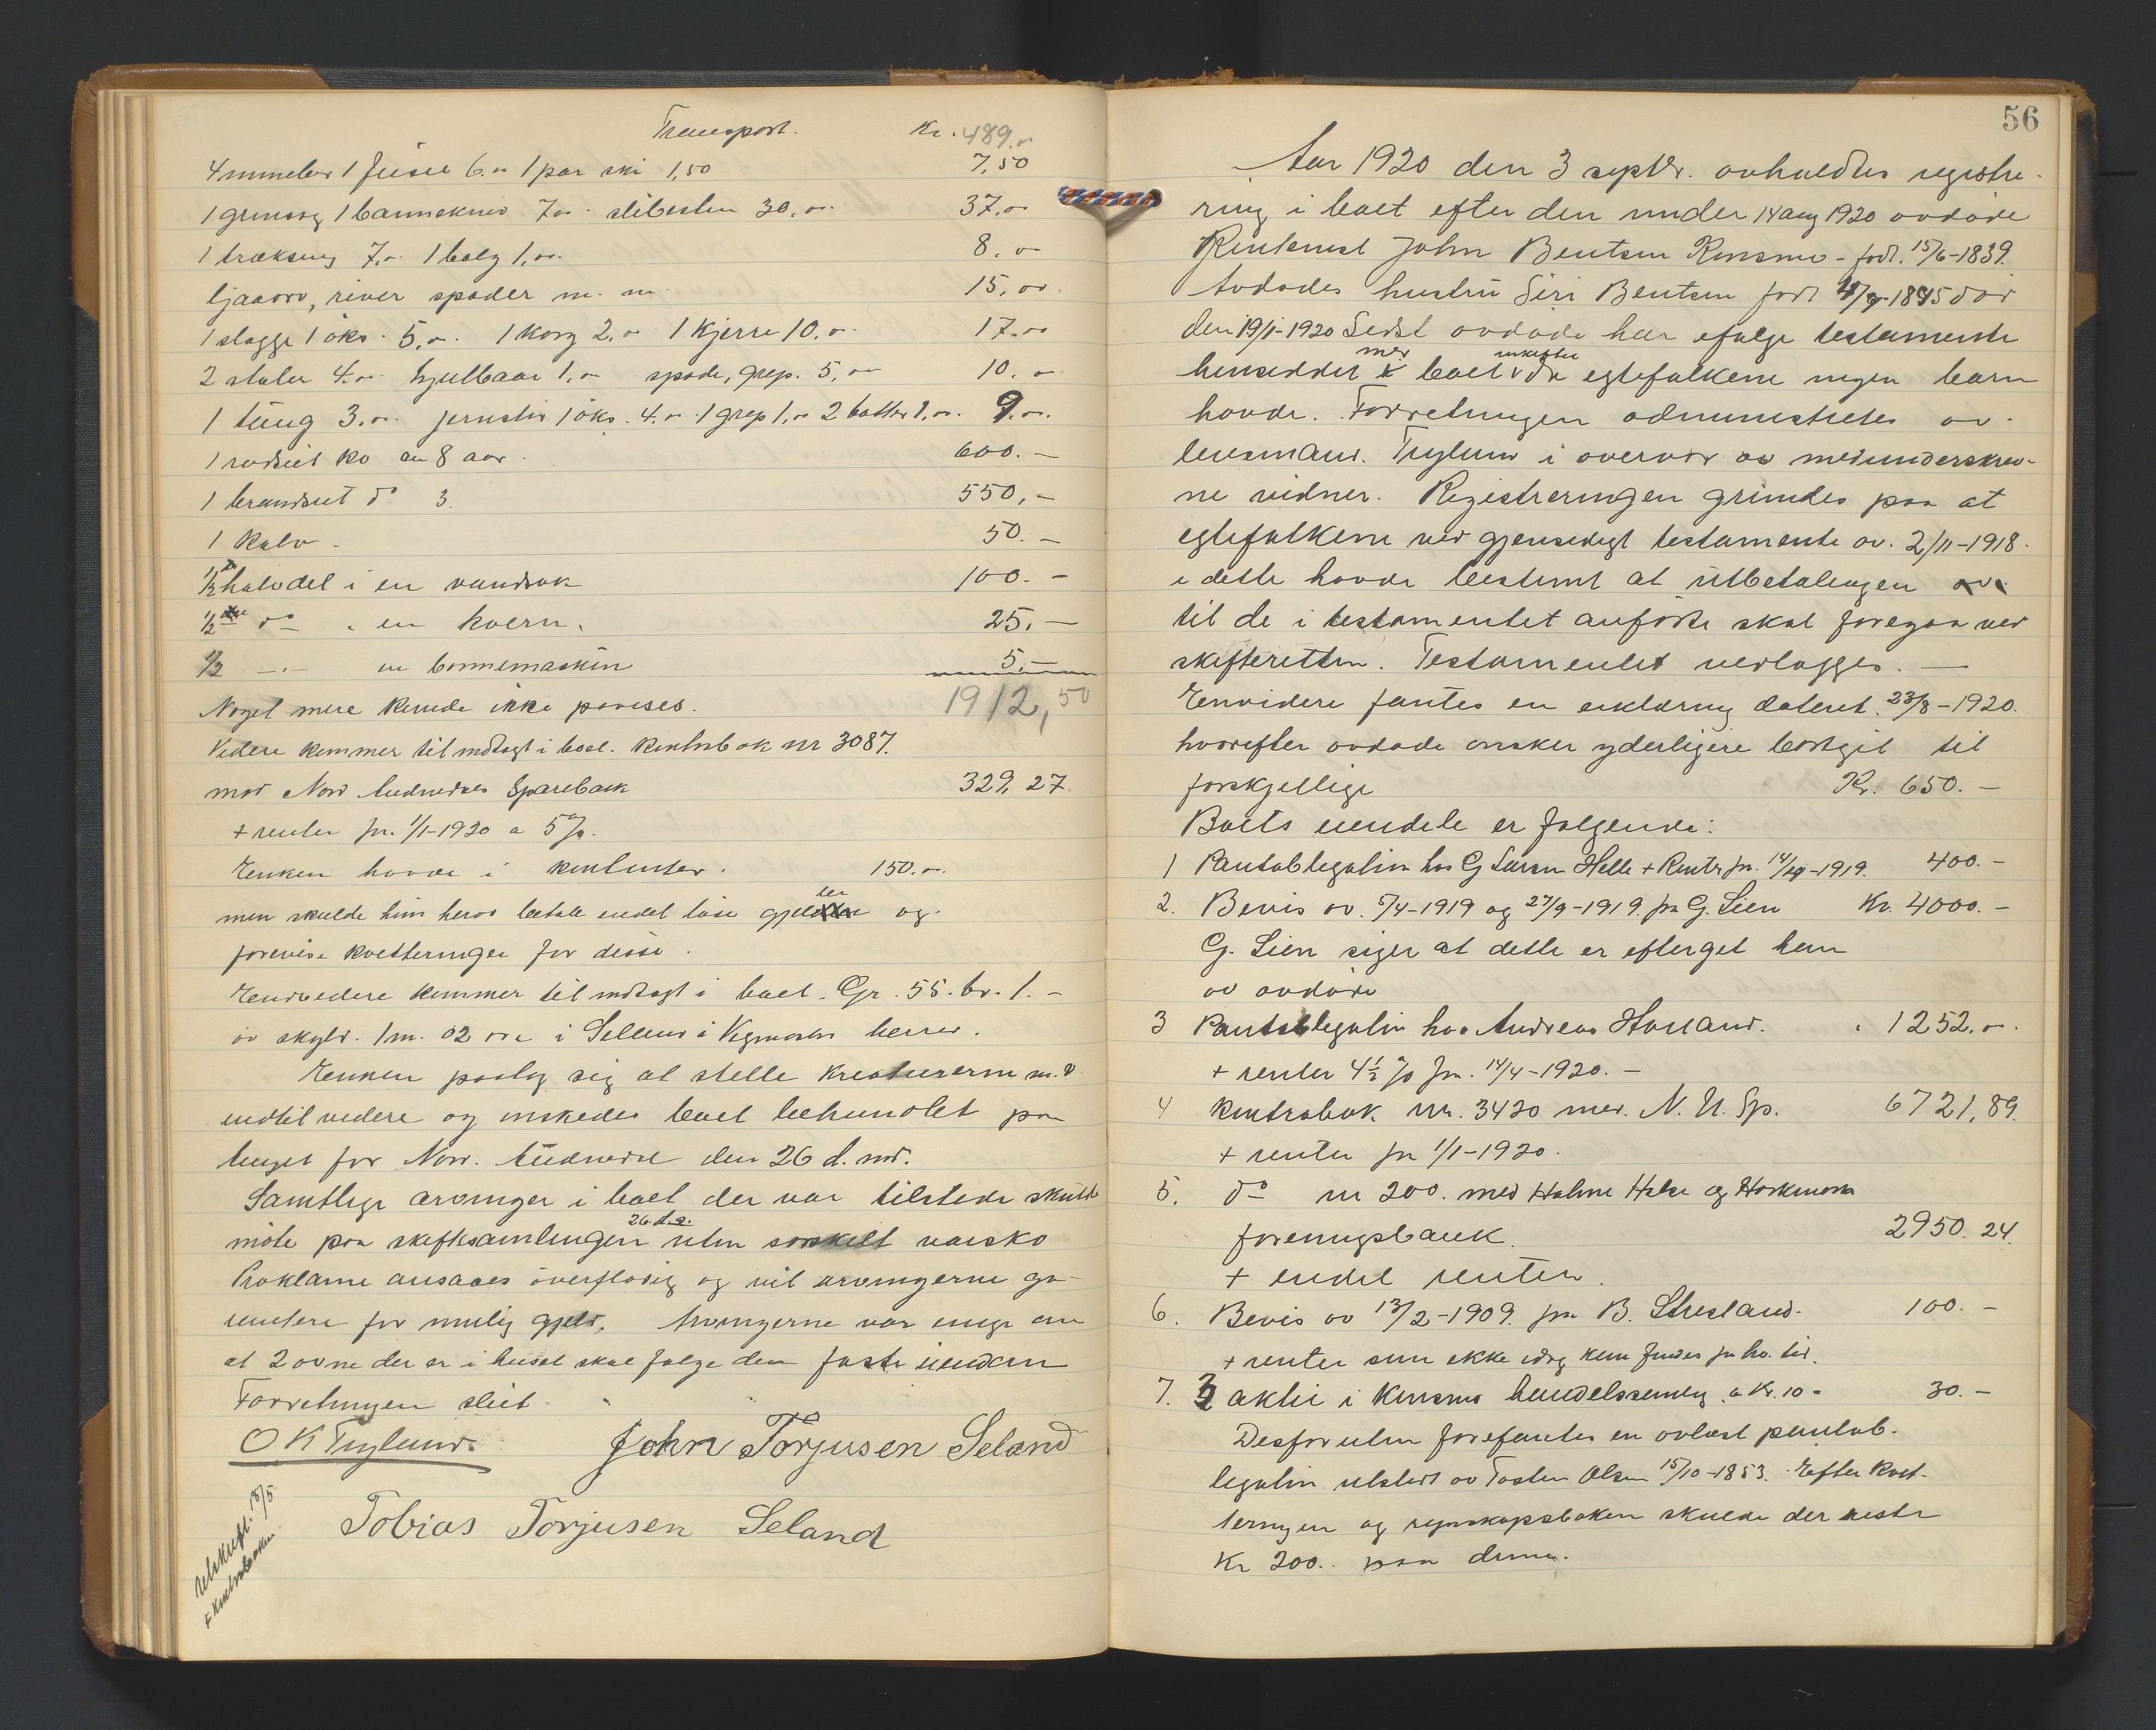 Transport. Kr. 489.
1 fusee 6. 1 par ski 1,50 7,50
1 grensag 1 7. slibesten 30. 37.
1 7. 1 balg 1. 8.
ljaaorv, river spader m. m. 15,
1 slægge 1 öks. 5. 1 korg 2. 1 kjerre 10. 17.
2 stoler 4. hjulbaar 1. spade, grep. 5, 10.
1 tüng 3. 1 öks. 4. 1 grep 1. 2 1. 9.
1 rødsiet ko 8 aar. 600.-
1 brandset do 3. 550,-
1 kalv - 50.-
1/2 halvdel i en vandsak 100.-
1/2 do " en kvern. 25.-
1/2 -"- en 5.-
Noget mere kunde ikke paavises. 1912,50
Videre kommer til indtægt i boet. Kontrabok nr 3087.
mod Nord Audnedals Sparebank 329,27
+ renter fra 1/1-1920 a 5%.
Enken havde i kontanter. 150.
men skulde hun herav betale endel løse gjelden og
forevise kvitteringer for disse.
Endvidere kommer til indtægt i boet. Gr. 55. br. 1.-
av skyld. 1 m. 02 øre i Selland i Vegmostad herred.
Enken paatog sig at stelle kreaturerne m. v.
indtil videre og ønskedes boet behandlet paa
tinget for Nord. Audnedal den 26 d. md.
Samtlige arvinger i boet der var tilstede skulde
møte paa skiftesamlingen 26. d. s. uten særskilt varsko
Proklama ansaaes överflødig og vil arvingerne ga-
rantere for mulig gjeld. Arvingerne var enige om
at 2 ovne der er i huset skal følge den faste eiendom
Forretningen slut.
O K Tryland. John Torjusen Seland
Tobias Torjusen Seland
utskrift. 18/5
+ kontraboken
56
Aar 1920 den 3 septbr. avholdtes registre-
ring i boet efter den under 14 aug 1920 avdøde
Rentenist John Bentsen Konsmo - född. 15/6-1839.
Avdødes hustru Siri Bentsen født 1845 dør
den 19/1-1920 Sidst avdøde har ifølge testamente
hensiddet med boet uskiftet da egtefolkene ingen barn
havde. Forretningen administreres av
lensmand. Trylund i overvær av medunderskrev-
ne vidner. Registreringen grundes paa at
egtefolkene ved gjensidigt testamente av. 2/11-1918.
i dette havde bestemt at utbetalingen
til de i testamentet anførte skal foregaa ved
skifteretten. Testamentet vedlægges. -
Envidere fantes en erklæring dateret. 23/8-1920.
hvorefter avdøde ønsker yderligere bortgit til
forskjellige Kr. 650.-
Boets eiendele er følgende:
1 Pantobligation hos G Larsen Helle + Renter fra. 1919. 400.-
2. Bevis av. 5/4-1919 og 27/9-1919. fra G. Lien Kr. 4000.-
G. Lien siger at dette er eftergit ham
av avdøde
3 Pantobligation hos Andreas Hølland. " 1252.
+ renter 4 1/2 % fra. 14/4-1920.-
4 Kontrabok nr. 3420 med. N. U. Sp. 6721,89
+ renter fra 1/1-1920.
5. do nr 200. med Holme Halse og Harkmark
foreningsbank. 2950.24.
+ endel renter.
6. Bevis av 13/2-1909. fra B. Stusland. 100.-
+ renter som ikke idag kan findes fra
7. 3 aktie i Konsmo handelssamlag a Kr. 10 - 30.-
Desforuten forefantes en avlæst pantob-
ligation utstedt av Tosten Olsen 15/10-1853. Efter kvit-
teringen og regnskapsboken skulde der reste
Kr 200.. paa denne.